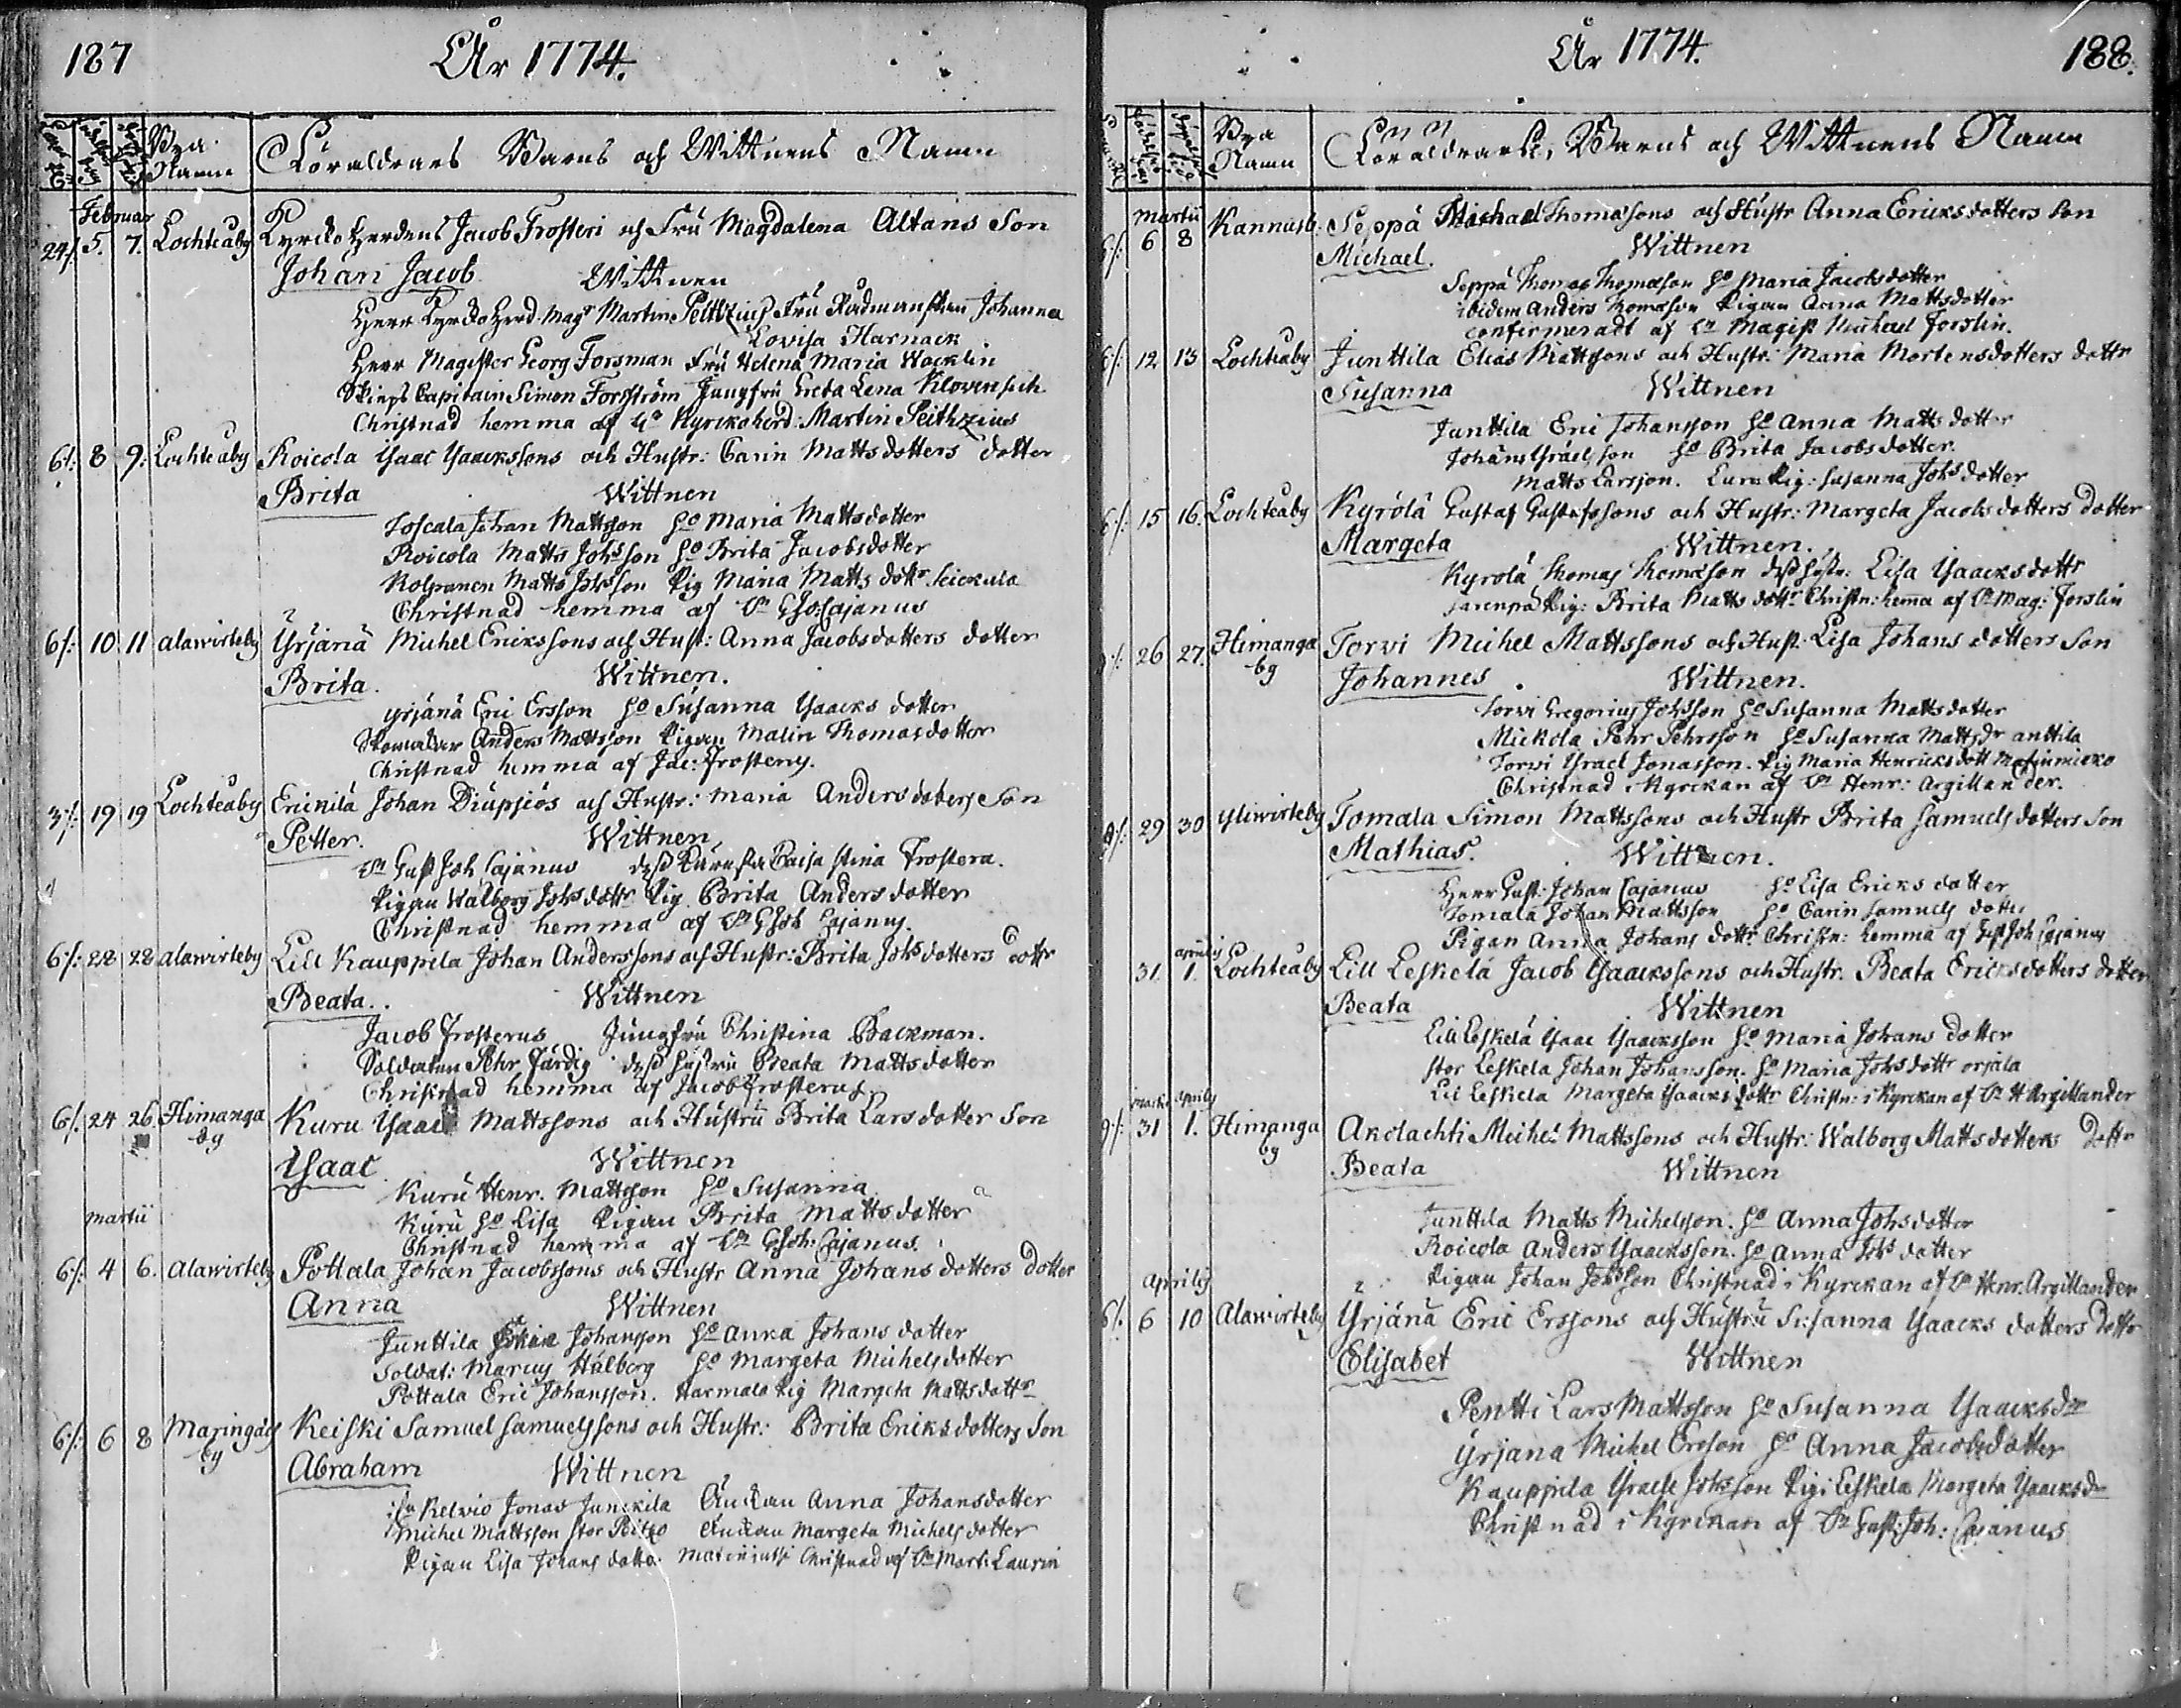 187 År 1774.
Bya Namn Föräldrars Barns och Wittnens Namn
Februar
24/. 5. 7. Lochteåby Kyrcko Herdens Jacob Frosteri och Fru Magdalena Altans Son
Johan Jacob. Wittnen
Herr Kyrcko Herd. Magr Martin Peithzius Fru Rådmanskan Johanna
Lovisa Harnack
Herr Magister Georg Forsman Fru Helena Maria Wacklin
Skieps Capitain Simon Forsström Jungfru Greta Lena
Christnad hemma af Hr Kyrckoherd: Martin Peithzius
6/: 8 9: Lochteåby Roicola Ysaac Ysaackssons och Hustr: Carin Mattsdotters dotter
Brita Wittnen
Toscala Johan Mattsson Ho Maria Mattsdotter
Roicola Matts Johsson Ho Brita Jacobsdotter
Matts Johsson Pig Maria Matts dottr
Christnad hemma af Hr G Joh Cajanus
6/: 10 11 alawirteby Yrjänä Michel Erickssons och Hust: Anna Jacobsdotters dotter
Brita. Wittnen.
yrjänä Eric Ersson Ho Susanna Ysaacks dotter
Skomakar Anders Mattsson Pigan Malin Thomasdotter
Christnad hemma af Jac: Frosterus.
3/: 19 19 Lochteåby Erickilä Johan Diupsiös och Hustr: Maria Andersdoters Son
Petter. Wittnen
Hr Gust Joh Cajanus dess Caisa Stina Frostera.
Pigan Walborg Johs dottr Pig. Brita Andersdotter
Christnad hemma af Hr G Joh Cajanus.
6/: 28 28 alawirteby Lill Kauppila Johan Anderssons och Hustr: Brita Johsdotters dottr
Beata.. Wittnen
Jacob Frosterus Jungfru Christina Backman.
Soldaten Pehr Färdig dess hustru Beata Mattsdotter
Christnad hemma af Jacob Frosterus.
6/. 24 26. Himanga by Kuru Ysaac Mattssons och Hustru Brita Larsdotter Son
Ysaac. Wittnen
Kuru Henr. Mattsson Ho Susanna
Kuru Ho Lisa Pigan Brita Mattsdotter
Christnad hemma af Hr G Joh: Cajanus.
Martii
6/: 4 6. Alawirteby Pottala Johan Jacobssons och Hustr Anna Johans dotters dotter
Anna Wittnen
Junttila Johansson Ho Anna Johans dotter
Soldat: Marcus Hålberg Ho Margeta Michelsdotter
Pottala Eric Johansson. Pig Margeta Mattsdottr
6/: 6 8 Maringais by Keiski Samuel Samuelssons och Hustr: Brita Ericksdotters Son
Abraham Wittnen
Kelvio Jonas Junckila Änckan Anna Johansdotter
Michel Mattsson Stor Änckan Margeta Michelsdotter
Pigan Lisa Johans dotter Christnad af Hr Mart: Laurin
År 1774. 188.
Bya Namn Föräldrars, Barns och Wittnens Namn
Martii
6/: 6 8 Kannusb. Seppä Michael Thomassons och Hustr Anna Ericksdotters Son
Michael. Wittnen
Seppä Thomas Thomasson Ho Maria Jacobsdotter
ibidem Anders Thomasson Pigan Anna Mattsdotter
confirmeradt af Hr Magist Michael Forslin.
6/: 12 13 Lochteåby Junttila Elias Mattssons och Hustr: Maria Mortensdotters dottr
Susanna Wittnen
Junttila Eric Johansson Ho Anna Matts dotter
Johan Ysraelsson Ho Brita Jacobsdotter.
Matts Larsson. Pig: Susanna Johs dotter
6/: 15 16. Lochteåby Kyrölä Gustaf Gustafssons och Hustr: Margeta Jacobsdotters dotter
Margeta Wittnen.
Kyrölä Thomas Thomasson dess hustr: Lisa Ysaacksdottr
Pig: Brita Matts dottr Christn: hemma af Hr Mag: Forslin
26 27. Himanga by Torvi Michel Mattssons och Hust. Lisa Johans dotters Son
Johannes. Wittnen.
Torvi Gregorius Johsson Ho Susanna Mattsdotter
Mickola Pehr Pehrsson Ho Susanna Mattsdr anttila
Torvi Ysrael Jonasson. Pig Maria Henricksdott
Christnad i Kyrckan af Hr Henr: Argillander.
29 30 yliwirteby Tomala Simon Mattssons och Hustr Brita Samuels dotters Son
Mathias. Wittnen.
Herr Gust. Johan Cajanus Ho Lisa Ericks dotter
Tomala Johan Mattsson Ho Carin Samuels dotter
Pigan Anna Johans dottr Christn: hemma af Gust Joh Cajanus
aprilis
31. 1. Lochteåby Lill Leskelä Jacob Ysaackssons och Hustr. Beata Ericksdotters dotter
Beata Wittnen
Lill Leskelä Ysaac Ysaacksson Ho Maria Johans dotter
Stor Leskela Johan Johansson. Ho Maria Johsdottr orjala
Lil Leskela Margeta Ysaacksdottr Christn: i Kyrckan af Hr H Argillander
Martii Aprilis
9/: 31 1. Himanga by Akolachti Michel Mattssons och Hustr: Walborg Mattsdotters dottr
Beata Wittnen
Junttila Matts Michelsson. Ho Anna Johsdotter
Roicola Anders Ysaacksson. Ho Anna Johs dotter
Pigan Johan Johsson Christnad i Kyrckan af Hr Henr. Argillander
Aprilis
6/. 6 10 Alawirteby Yrjänä Eric Erssons och Hustru Susanna Ysaacks dotters dottr
Elisabet Wittnen
Pentti Lars Mattsson Ho Susanna Ysaacksdr
Yrjana Michel Ersson Ho Anna Jacobsdotter
Kauppila Ysrael Johsson Pig: Leskela Margeta Ysaacksdr
Christnad i Kyrckan af Hr Gust: Joh: Cajanus